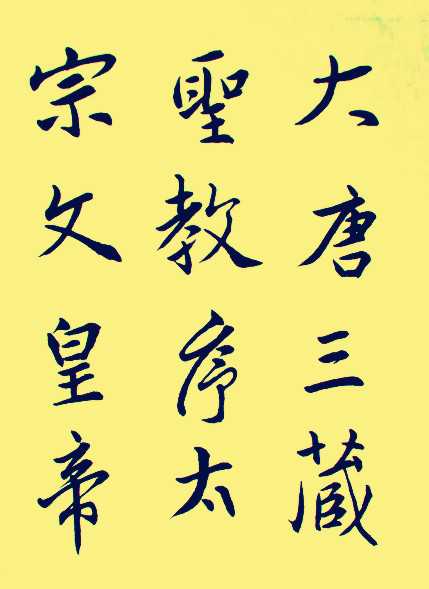 大唐三蔵
聖教序太
宗文皇帝